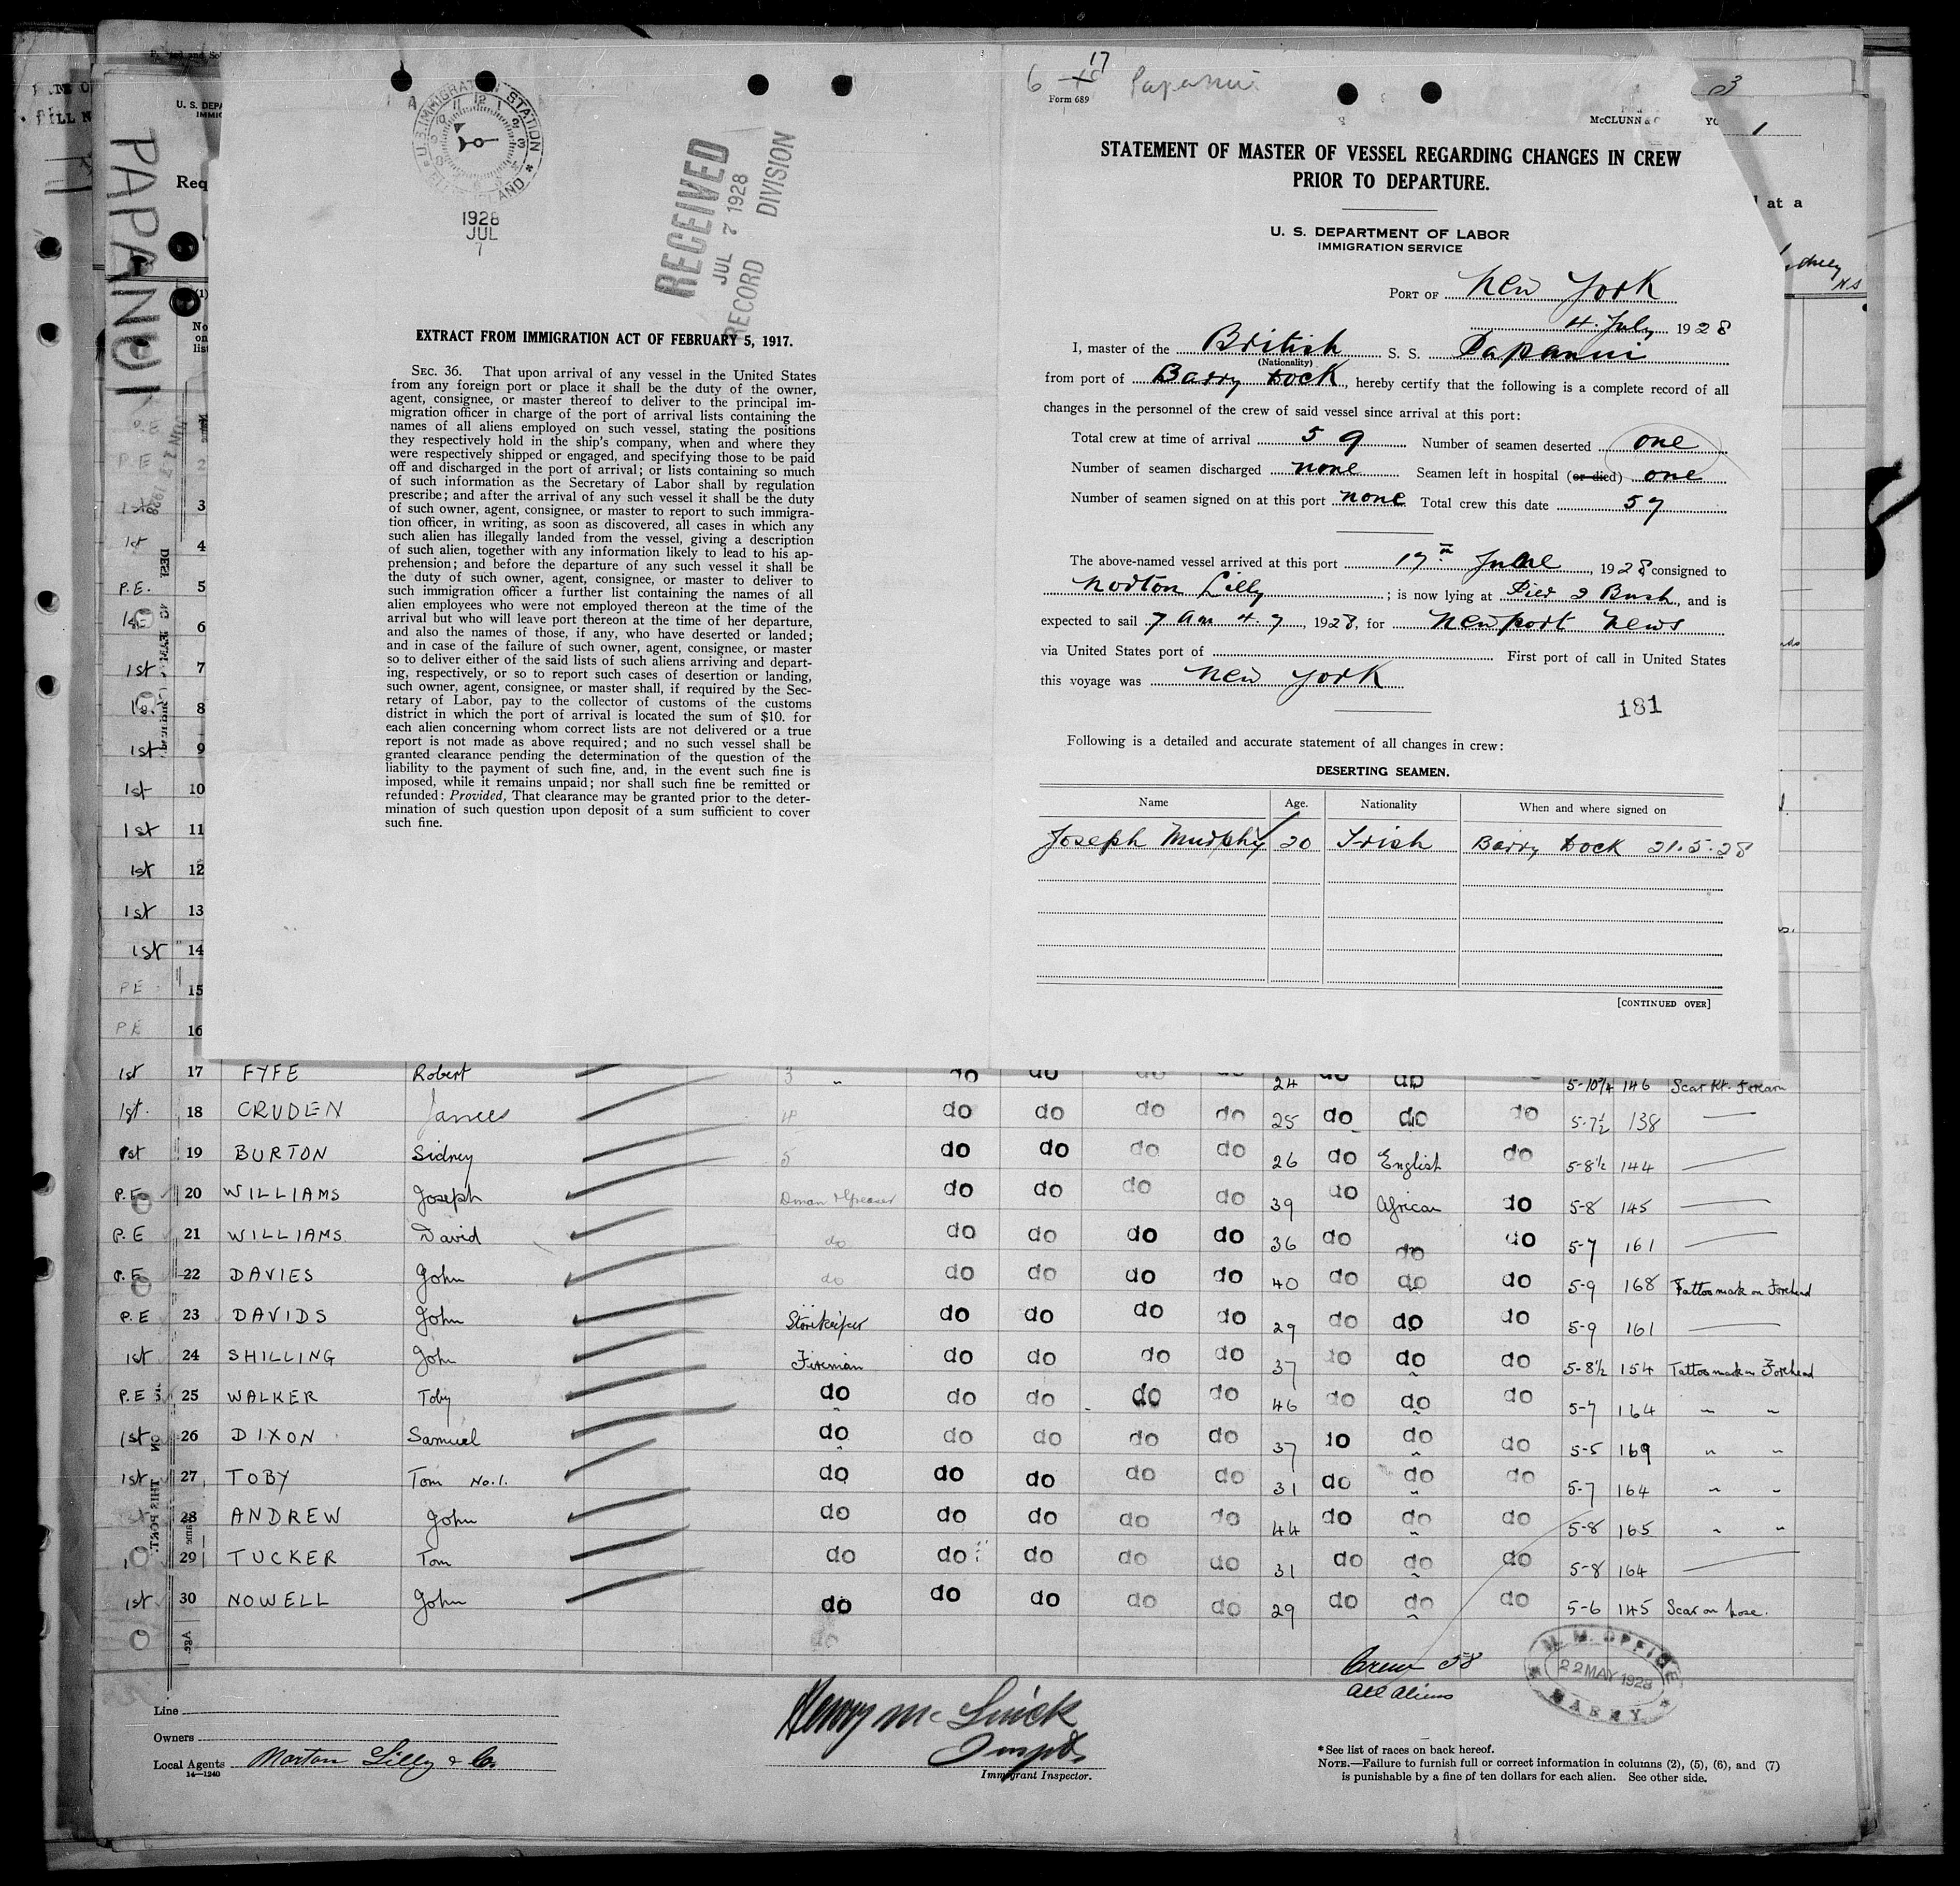 PAPANUI
U. S. IMMIGRATION STATION
1928
JUL
7
RECEIVED
JUL 7 1928
RECORD DIVISION
EXTRACT FROM IMMIGRATION ACT OF FEBRUARY 5, 1917.
SEC. 36. That upon arrival of any vessel in the United States
from any foreign port or place it shall be the duty of the owner,
agent, consignee, or master thereof to deliver to the principal im-
migration officer in charge of the port of arrival lists containing the
names of all aliens employed on such vessel, stating the positions
they respectively hold in the ship's company, when and where they
were respectively shipped or engaged, and specifying those to be paid
off and discharged in the port of arrival; or lists containing so much
of such information as the Secretary of Labor shall by regulation
prescribe; and after the arrival of any such vessel it shall be the duty
of such owner, agent, consignee, or master to report to such immigra-
tion officer, in writing, as soon as discovered, all cases in which any
such alien has illegally landed from the vessel, giving a description
of such alien, together with any information likely to lead to his ap-
prehension; and before the departure of any such vessel it shall be
the duty of such owner, agent, consignee, or master to deliver to
such immigration officer a further list containing the names of all
alien employees who were not employed thereon at the time of the
arrival but who will leave port thereon at the time of her departure,
and also the names of those, if any, who have deserted or landed;
and in case of the failure of such owner, agent, consignee, or master
so to deliver either of the said lists of such aliens arriving and depart-
ing, respectively, or so to report such cases of desertion or landing,
such owner, agent, consignee, or master shall, if required by the Sec-
retary of Labor, pay to the collector of customs of the customs
district in which the port of arrival is located the sum of $10. for
each alien concerning whom correct lists are not delivered or a true
report is not made as above required; and no such vessel shall be
granted clearance pending the determination of the question of the
liability to the payment of such fine, and, in the event such fine is
imposed, while it remains unpaid; nor shall such fine be remitted or
refunded: Provided, That clearance may be granted prior to the deter-
mination of such question upon deposit of a sum sufficient to cover
such fine.
6 17 Papanui
Form 689
McCLUNN &
STATEMENT OF MASTER OF VESSEL REGARDING CHANGES IN CREW
PRIOR TO DEPARTURE.
U. S. DEPARTMENT OF LABOR
IMMIGRATION SERVICE
PORT OF New York
4 July 1928
I, master of the British S. S. Papanui
(Nationality)
from port of Barry Dock, hereby certify that the following is a complete record of all
changes in the personnel of the crew of said vessel since arrival at this port:
Total crew at time of arrival 59 Number of seamen deserted one
Number of seamen discharged none Seamen left in hospital (or died) one
Number of seamen signed on at this port none Total crew this date 57
The above-named vessel arrived at this port 17th June, 1928 consigned to
Norton Lilly; is now lying at Pier 2 Bush, and is
expected to sail 7 am 4.7, 1928, for Newport News
via United States port of First port of call in United States
this voyage was New York
181
Following is a detailed and accurate statement of all changes in crew:
DESERTING SEAMEN.
Name Age. Nationality When and where signed on
Joseph Murphy 20 Irish Barry Dock 21.5.28
[CONTINUED OVER]
P.E. 5
6
1st 7
8
1st 9
1st 10
1st 11
1st 12
1st 13
1st 14
PE 15
PE 16
1st 17 FYFE Robert 3 " do do do do 24 do do 5-10¾ 146 Scar Rt. Forearm
1st 18 CRUDEN James 4 do do do do 25 do do do 5-7½ 138
1st 19 BURTON Sidney 5 do do do do 26 do English do 5-8½ 144
P.E 20 WILLIAMS Joseph Dman & Greaser do do do do 39 do African do 5-8 145
P.E 21 WILLIAMS David do do do do do 36 do do do 5-7 161
P.E 22 DAVIES John do do do do do 40 do do do 5-9 168 Tattoo mark on Forehead
P.E 23 DAVIDS John Storekeeper do do do do 29 do do do 5-9 161
1st 24 SHILLING John Fireman do do do do 37 do do do 5-8½ 154 Tattoo mark on Forehead
P.E 25 WALKER Toby do do do do do 46 do do do 5-7 164 " "
1st 26 DIXON Samuel do do do do do 37 do do do 5-5 169 " "
1st 27 TOBY Tom No.1. do do do do do 31 do do do 5-7 164 " "
1st 28 ANDREW John do do do do do 44 do do do 5-8 165 " "
29 TUCKER Tom do do do do do 31 do do do 5-8 164
1st 30 NOWELL John do do do do do 29 do do do 5-6 145 Scar on nose.
do
Crew 58
All Aliens
M. M. OFFICE
22 MAY 1928
BARRY
Line
Owners
Local Agents Norton Lilly & Co.
14—1240
Immigrant Inspector.
*See list of races on back hereof.
NOTE.—Failure to furnish full or correct information in columns (2), (5), (6), and (7)
is punishable by a fine of ten dollars for each alien. See other side.